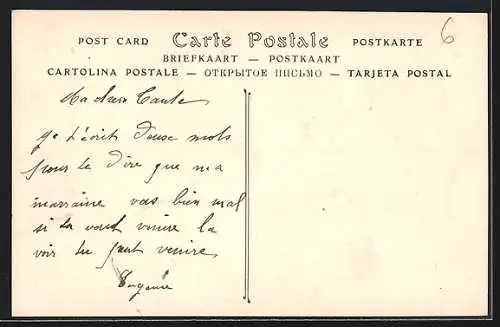 POST CARD Carte Postale POSTKARTE 6
BRIEFKAART — POSTKAART
CARTOLINA POSTALE — ОТКРЫТОЕ ПИСЬМО — TARJETA POSTAL
Ma chere Tante
je t'écrit deuse mots
pour te dire que ma
marraine vas bien mal
si ta vout venire la
voir tu peut venire
Eugenie